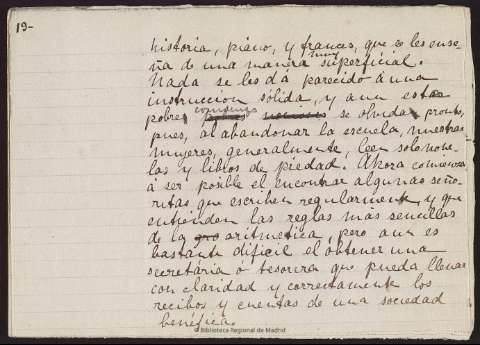 19-
historia, piano, y frances, que se les ense-
ña de una manera muy superficial.
Nada se les dá parecido á una
instruccion sólida, y aun estas
pobres nociones se olvidan pronto,
pues, al abandonar la escuela, nuestras
mujeres, generalmente, leen solo nove-
las y libros de piedad. Ahora comienza
á ser posible el encontrar algunas seño-
ritas que escriben regularmente, y que
entienden las reglas más sencillas
de la aritmetica, pero aun es
bastante dificil el obtener una
secretária ó tesorera que pueda llevar
con claridad y correctamente los
recibos y cuentas de una sociedad
benéfica.
© Biblioteca Regional de Madrid